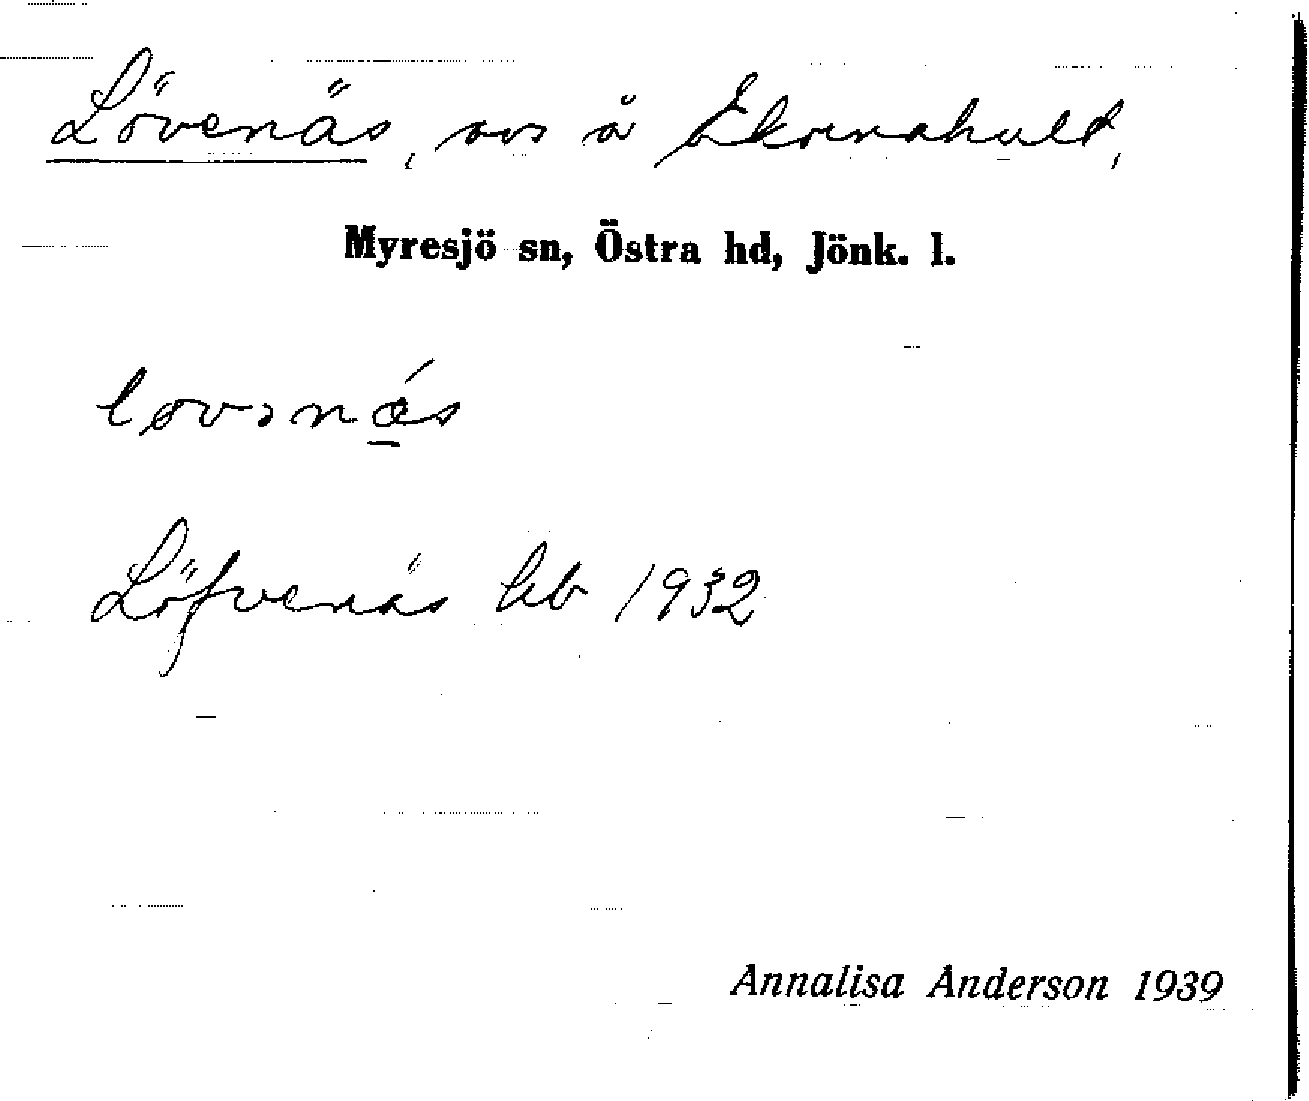 Lövenäs, avs å Ekornahult,
Myresjö sn, Östra hd, Jönk. l.
Löfvenäs kb 1932
Annalisa Anderson 1939